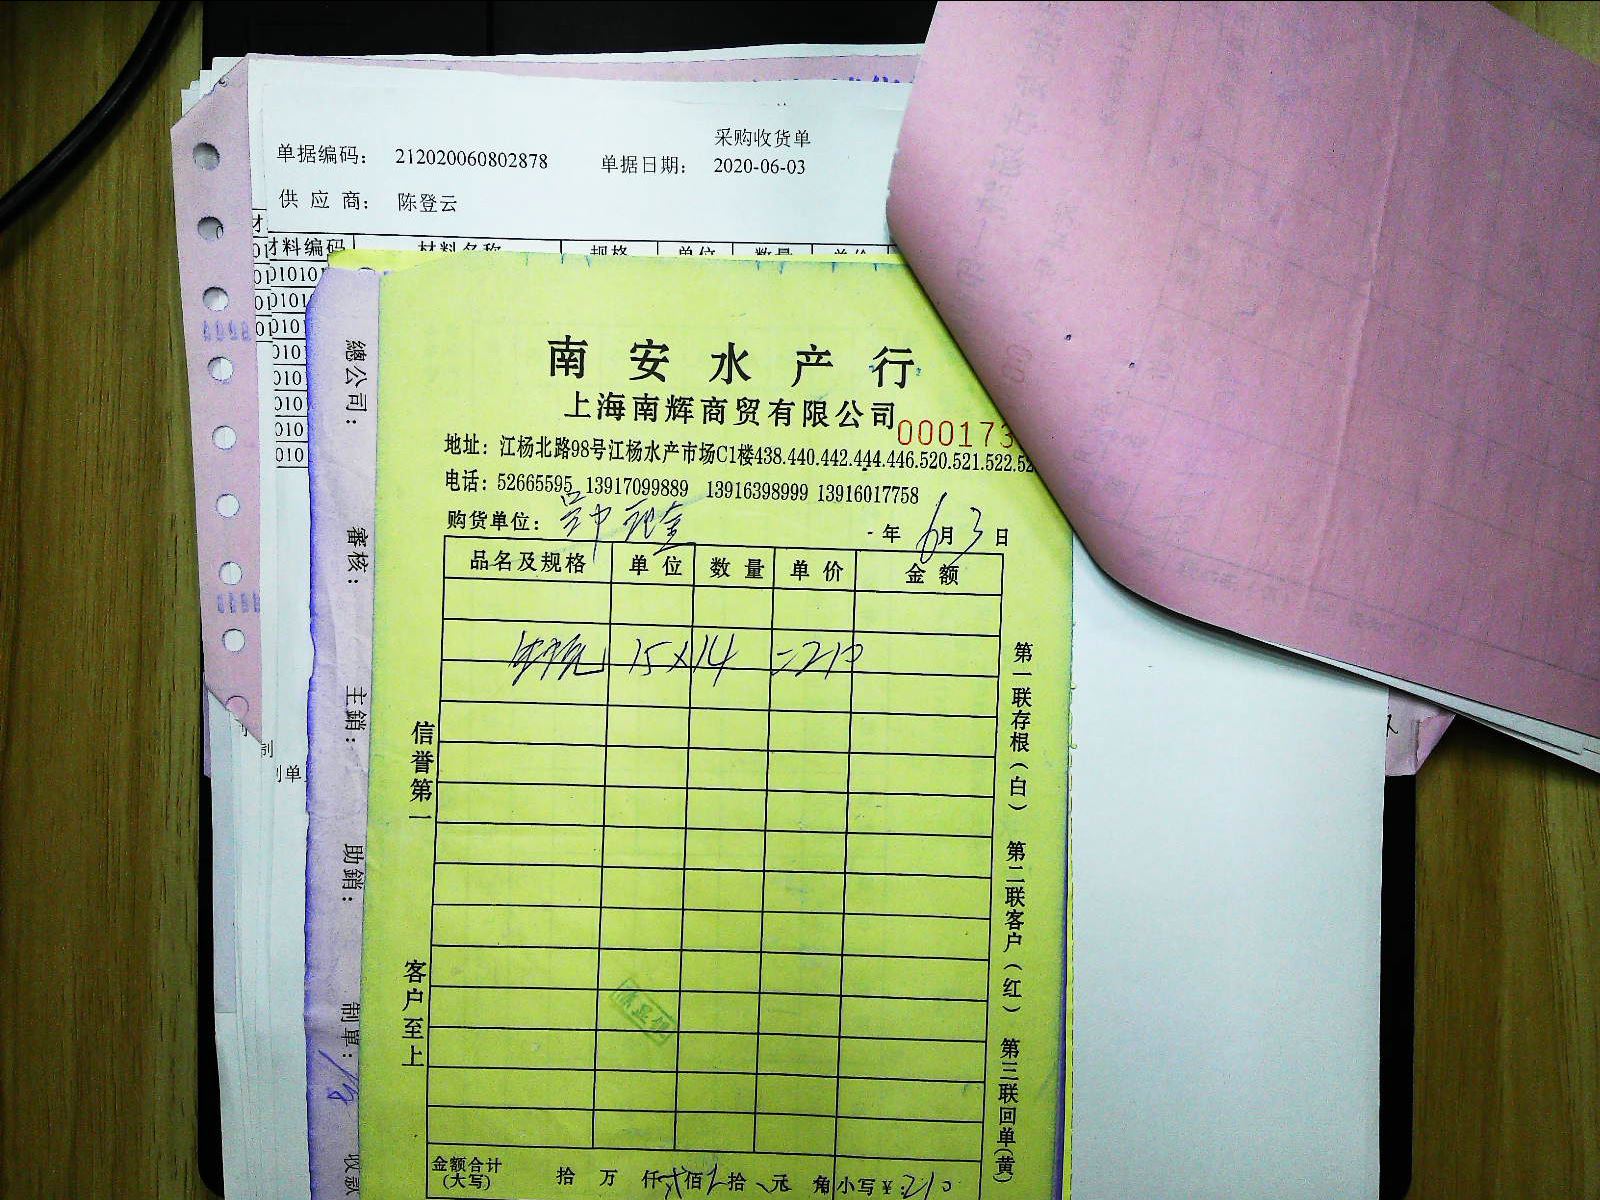 采购收货单
单据编码： 212020060802878 单据日期： 2020-06-03
供 应 商： 陈登云
材料编码 材料名称 规格 单位 数量 单价
总公司：
審核：
主銷：
助銷：
制單：
收款
南安水产行
上海南辉商贸有限公司
000173
地址：江杨北路98号江杨水产市场C1楼438.440.442.444.446.520.521.522.52
电话：52665595 13917099889 13916398999 13916017758
购货单位： 年 6月3日
品名及规格 单位 数量 单价 金额
15×14 =210
信誉第一
客户至上
第一联存根（白） 第二联客户（红） 第三联回单（黄）
金额合计
（大写） 拾 万 仟 佰 拾 元 角 小写￥：210